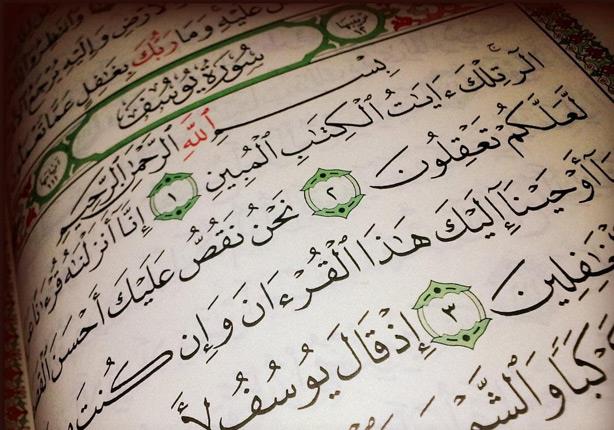 وَٱنتَظِرُوٓا۟
وَٱلْأَرْضِ وَإِلَيْهِ يُرْجَعُ
عَلَيْهِ وَمَا رَبُّكَ بِغَٰفِلٍ عَمَّا تَعْمَلُ
سُورَةُ يُوسُفَ
بِسْمِ ٱللَّهِ ٱلرَّحْمَٰنِ ٱلرَّحِيمِ
الٓر تِلْكَ ءَايَٰتُ ٱلْكِتَٰبِ ٱلْمُبِينِ ١ إِنَّآ أَنزَلْنَٰهُ قُرْءَٰنًا عَ
لَّعَلَّكُمْ تَعْقِلُونَ ٢ نَحْنُ نَقُصُّ عَلَيْكَ أَحْسَنَ ٱلْقَصَ
مَآ أَوْحَيْنَآ إِلَيْكَ هَٰذَا ٱلْقُرْءَانَ وَإِن كُنتَ
ٱلْغَٰفِلِينَ ٣ إِذْ قَالَ يُوسُفُ لِأَ
كَبًا وَٱلشَّمْ